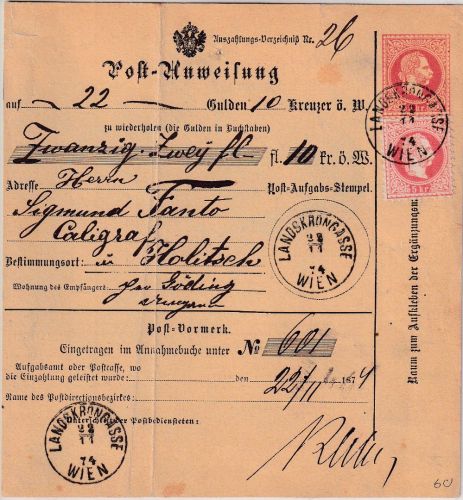 Auszahlungs-Verzeichniß Nr. 26
Post-Anweisung
auf 22 Gulden 10 Kreuzer ö. W.
zu wiederholen (die Gulden in Buchstaben)
Zwanzig Zwey fl. fl. 10 kr. ö. W.
Adresse Herrn
Post-Aufgabs-Stempel.
Sigmund Fanto
Caligraf
Bestimmungsort: in Holitsch
Wohnung des Empfängers: per Göding
LANDSKRONGASSE
22
11
74
WIEN
LANDSKRONGASSE
22
11
74
WIEN
5 kr.
Raum zum Aufkleben der Ergänzungsm
Post-Vormerk.
Eingetragen im Annahmebuche unter № 601
Aufgabsamt oder Postcasse, wo
die Einzahlung geleistet wurde: den 22/11 1874
Name des Postdirectionsbezirkes:
Unterschrift der Postbediensteten:
LANDSKRONGASSE
22
11
74
WIEN
60